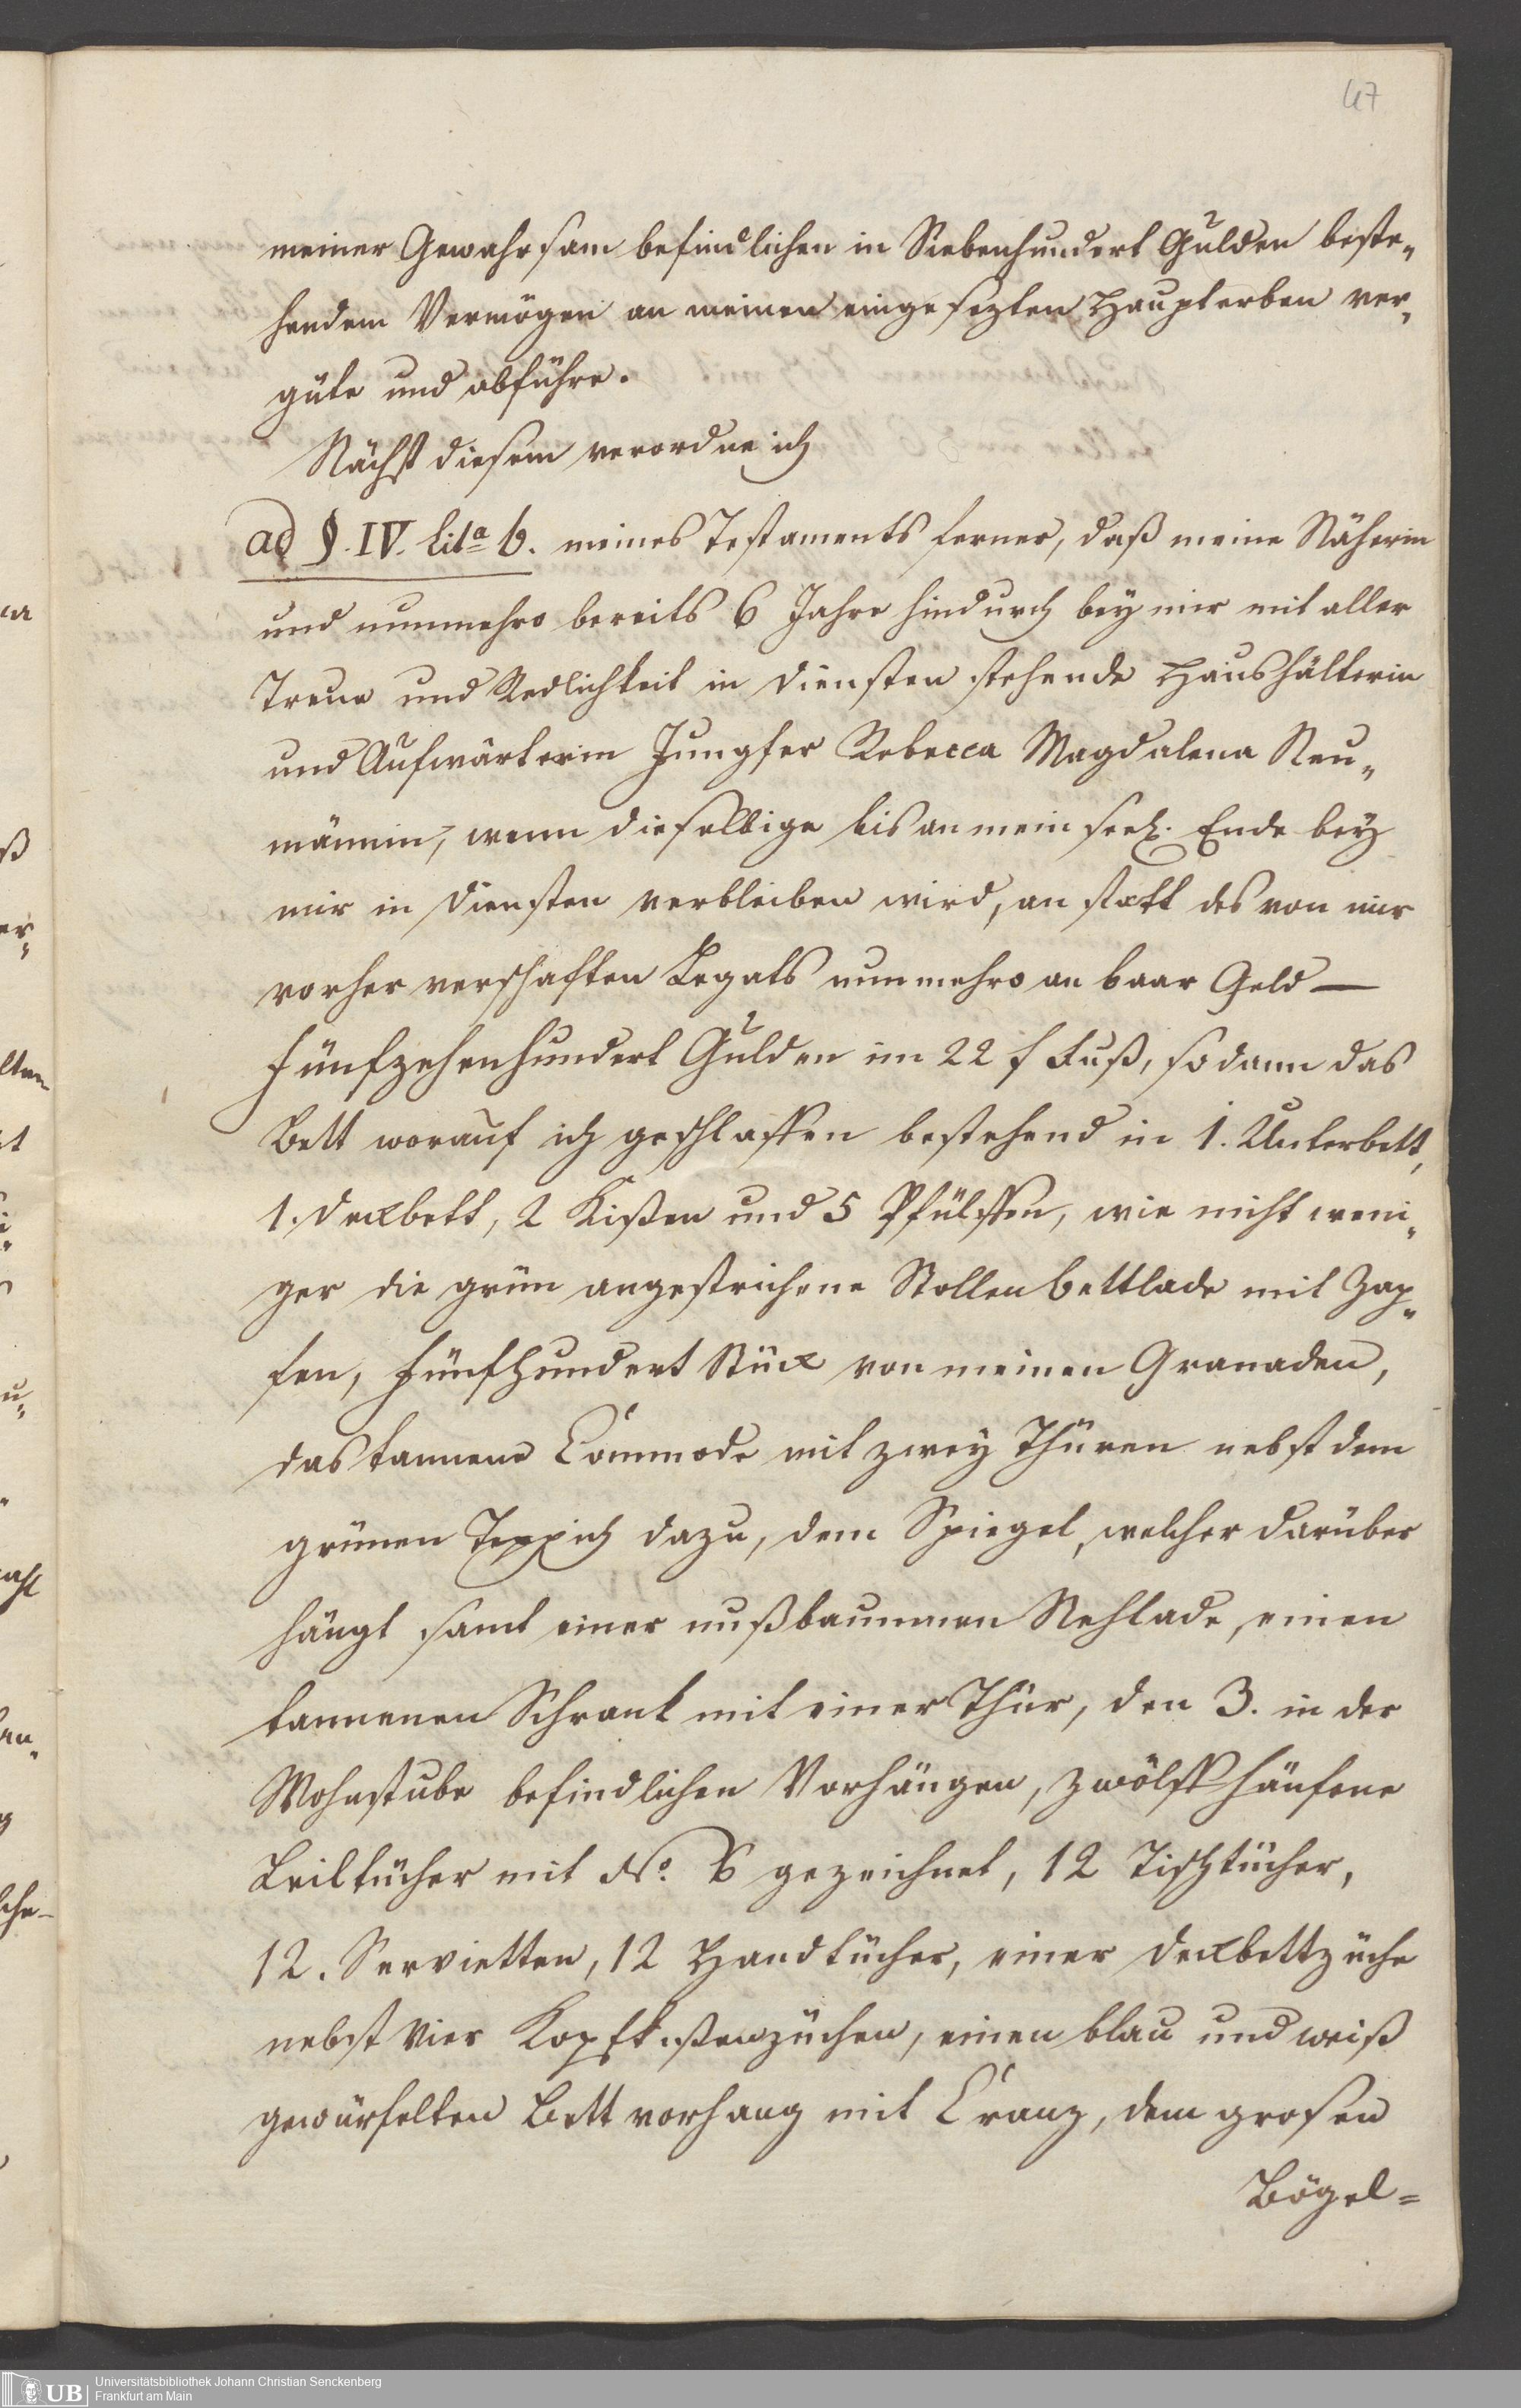 47
meiner Gewahrsam befindlichen in Siebenhundert Gulden beste„
hendem Vermögen an meinen eingesezten Haupterben ver„
güte und abführe.
Nächst diesem verordne ich
ad §. IV. Lita b. meines Testaments ferner, daß meine Näherin
und nunmehro bereits 6 Jahre hindurch bey mir mit aller
Treue und Redlichkeit in Diensten stehende Haushälterin
und Aufwärterin Jungfer Rebecca Magdalena Neu„
männin, wenn dieselbige bis an mein seel. Ende bey
mir in Diensten verbleiben wird, an statt des von mir
vorher verschaften Legats nunmehro an baar Geld —
Fünfzehenhundert Gulden im 22 f Fuß, sodann das
Bett worauf ich geschlaffen bestehend in 1. Unterbett,
1. Deckbett, 2 Kißen und 5 Pfülffen, wie nicht weni„
ger die grün angestrichene Stollenbettlade mit Zap„
fen, fünfhundert Stück von meinen Granaden,
das tannene Commode mit zwey Thüren nebst dem
grünen Teppich dazu, dem Spiegel, welcher darüber
hängt samt einer nußbaumnen Nehlade, einen
tannenen Schrank mit einer Thür, den 3. in der
Wohnstube befindlichen Vorhängen, zwölff häufene
Leiltücher mit No. 6 gezeichnet, 12 Tischtücher,
12. Servietten, 12 Handtücher, einer Deckbettzüche
nebst vier Kopfkißenzüchen, einen blau und weiß
gewürfelten Bettvorhang mit Cranz, dem grosen
Bögel=
UB
Universitätsbibliothek Johann Christian Senckenberg
Frankfurt am Main